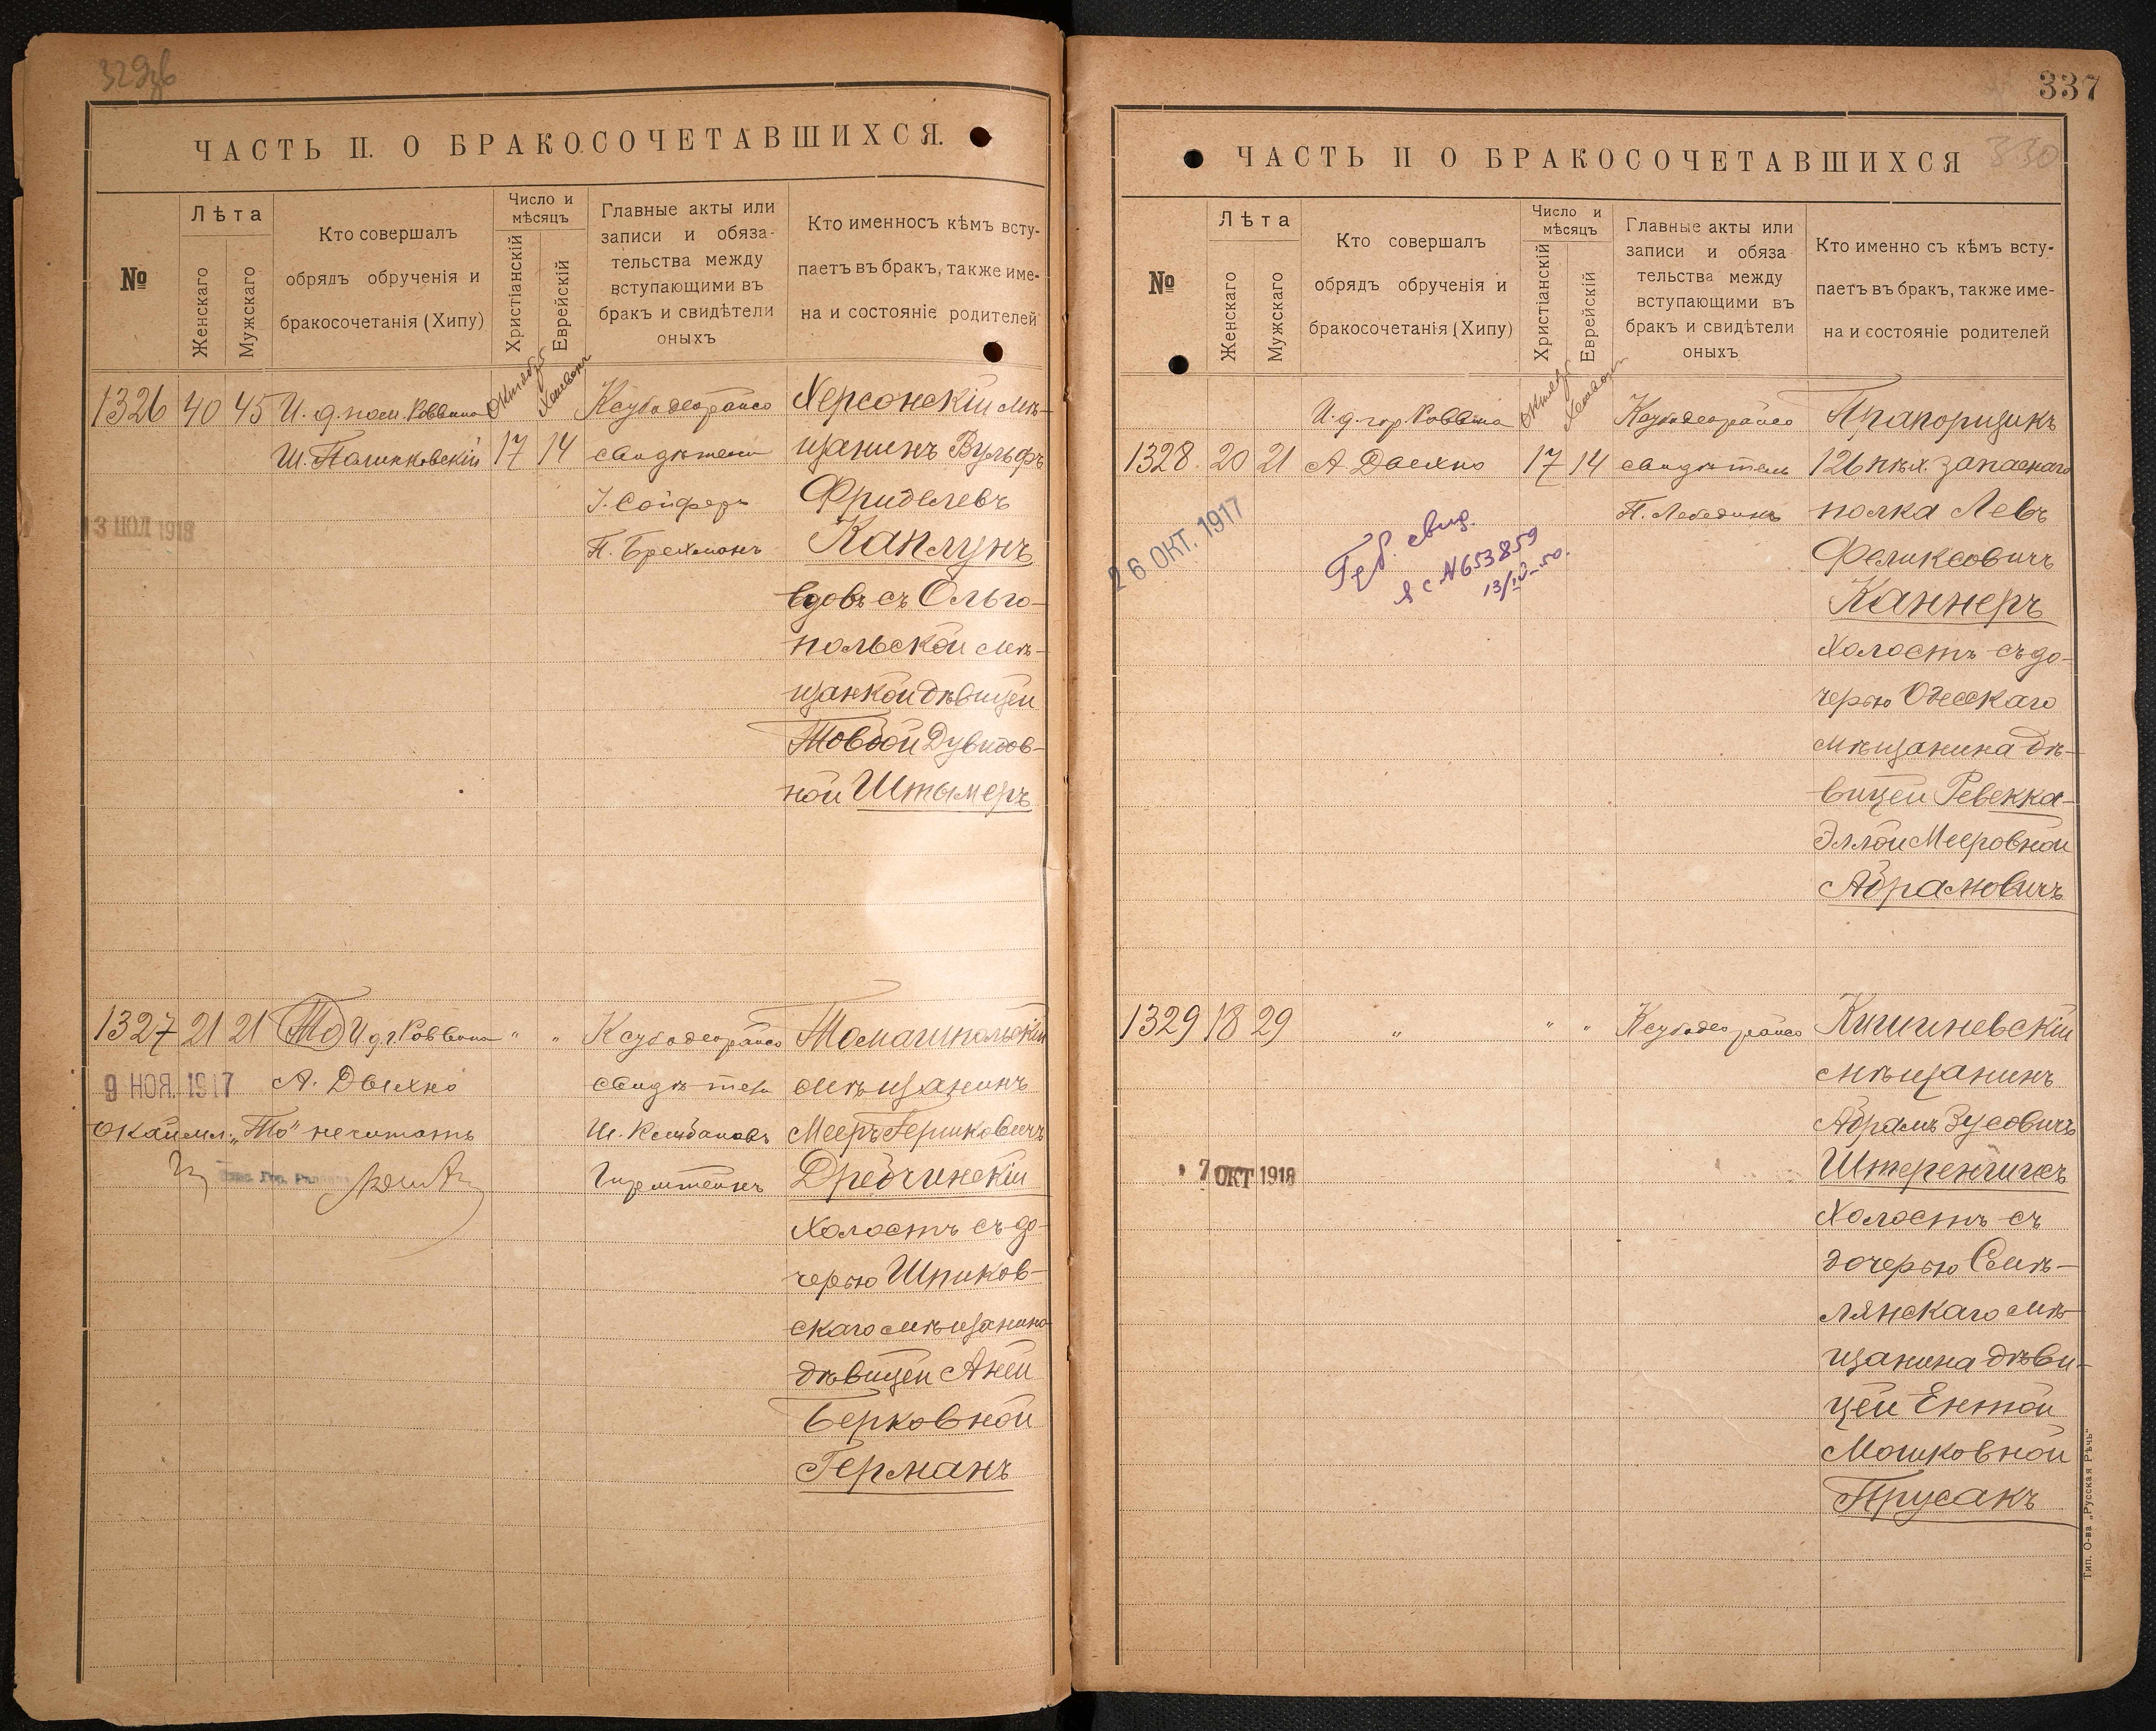 329зв
ЧАСТЬ II. О БРАКОСОЧЕТАВШИХСЯ.
№
Лѣта
Женскаго
Мужскаго
Кто совершалъ
обрядъ обрученія и
бракосочетанія (Хипу)
Число и
мѣсяцъ
Христіанскій
Еврейскій
Главные акты или
записи и обяза-
тельства между
вступающими въ
бракъ и свидѣтели
оныхъ
Кто именносъ кѣмъ всту-
паетъ въ бракъ, также име-
на и состояніе родителей
1326 40 45 И. д. пом. Раввина
Ш. Полинковскій
Октября
Хешвонъ
17 14
Ксубодеорайсо
свидѣтели
І. Сойферъ
П. Брехманъ
Херсонскій мѣ-
щанинъ Вульфъ
Фриделевъ
Каплунъ
вдовъ съ Ольго-
польской мѣ-
щанкой дѣвицей
Товбой Дувидов-
ной Штымеръ
1327 21 21 То И. д. г. Раввина " "
А. Дыхно
9 НОЯ. 1917
окаймл. „То" нечитать
Ксубодеорайсо
свидѣтели
Гирштейнъ
Томашпольскій
мѣщанинъ
Мееръ Гершковичъ
Дребчинскій
холостъ съ до-
черью Шпиков-
скаго мѣщанина
дѣвицей Аней
Берковной
Германъ
337
330
ЧАСТЬ II О БРАКОСОЧЕТАВШИХСЯ
№
Лѣта
Женскаго
Мужскаго
Кто совершалъ
обрядъ обрученія и
бракосочетанія (Хипу)
Число и
мѣсяцъ
Христіанскій
Еврейскій
Главные акты или
записи и обяза
тельства между
вступающими въ
бракъ и свидѣтели
оныхъ
Кто именно съ кѣмъ всту-
паетъ въ бракъ, также име-
на и состояніе родителей
И. д. гор. Раввина
1328. 20 21 А. Дыхно
Октября
Хешвон
17 14
26 ОКТ. 1917
свид.
Я с №653859
Ксубодеорайсо
свидѣтель
П. Лебединъ
Прапорщикъ
126 пѣх. запаснаго
полка Левъ
Феликсовичъ
Каннеръ
холостъ съ до-
черью Одесскаго
мѣщанина дѣ-
вицей Ревекка-
Эллой Мееровной
Абрамовичъ
1329 18 29 " " "
7 ОКТ 1918
Ксубодеорайсо
Кишиневскій
мѣщанинъ
Абрамъ Зусовичъ
Штеренгисъ
холостъ съ
дочерью Смѣ-
лянскаго мѣ-
щанина дѣви-
цей Ентой
Мошковной
Прусакъ
Тип. О-ва „Русская Рѣчь"